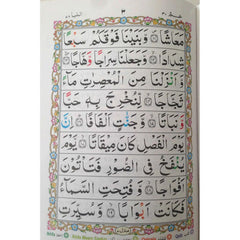 ٣
مَعَاشًا ۝ وَّبَنَيْنَا فَوْقَكُمْ سَبْعًا
شِدَادًا ۝ وَّجَعَلْنَا سِرَاجًا وَّهَّاجًا ۝
وَّاَنْزَلْنَا مِنَ الْمُعْصِرٰتِ مَآءً
ثَجَّاجًا ۝ لِّنُخْرِجَ بِهٖ حَبًّا
وَّنَبَاتًا ۝ وَّجَنّٰتٍ اَلْفَافًا ۝ اِنَّ
يَوْمَ الْفَصْلِ كَانَ مِيْقَاتًا ۝ يَّوْمَ
يُنْفَخُ فِى الصُّوْرِ فَتَاْتُوْنَ
اَفْوَاجًا ۝ وَّفُتِحَتِ السَّمَآءُ
فَكَانَتْ اَبْوَابًا ۝ وَّسُيِّرَتِ